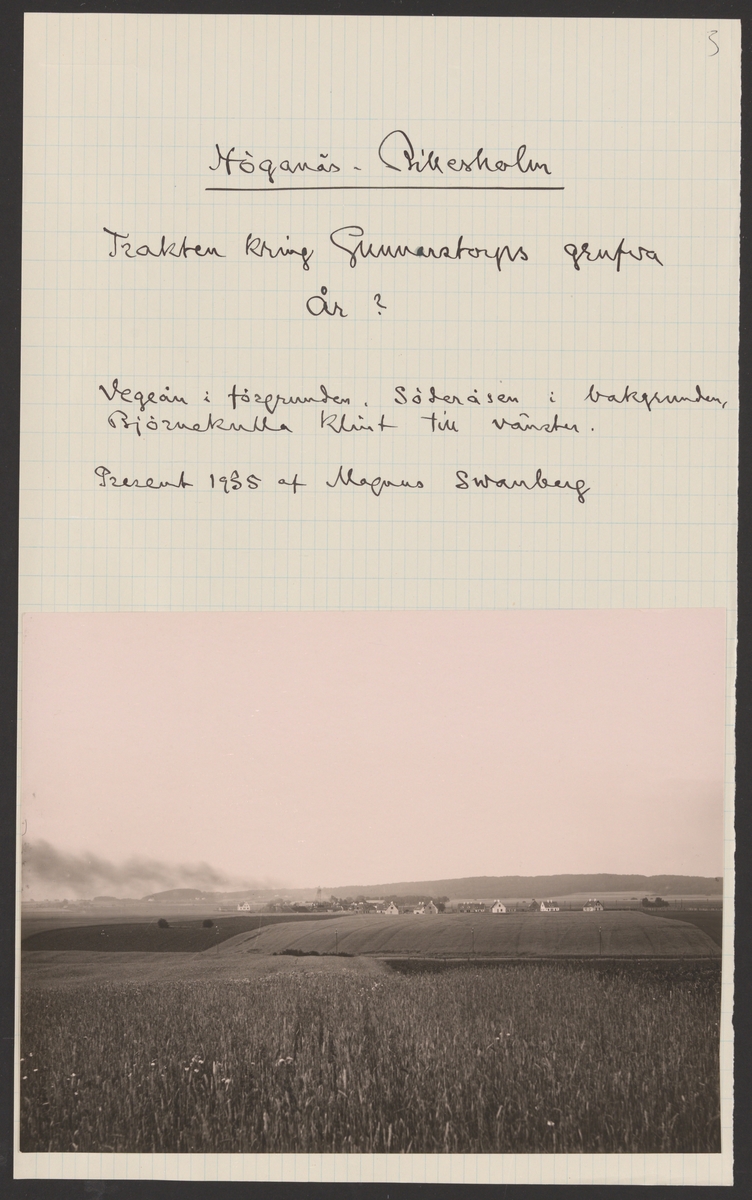 5
Höganäs - Billesholm
Trakten kring Gunnarstorps grufva
År ?
Vegeån i förgrunden. Söderåsen i bakgrunden,
Björnekulla klint till vänster.
Present 1935 af Magnus Swanberg